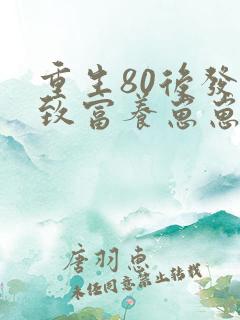 重生80後發
致富養崽崽
唐羽惠
未任同意禁止转载